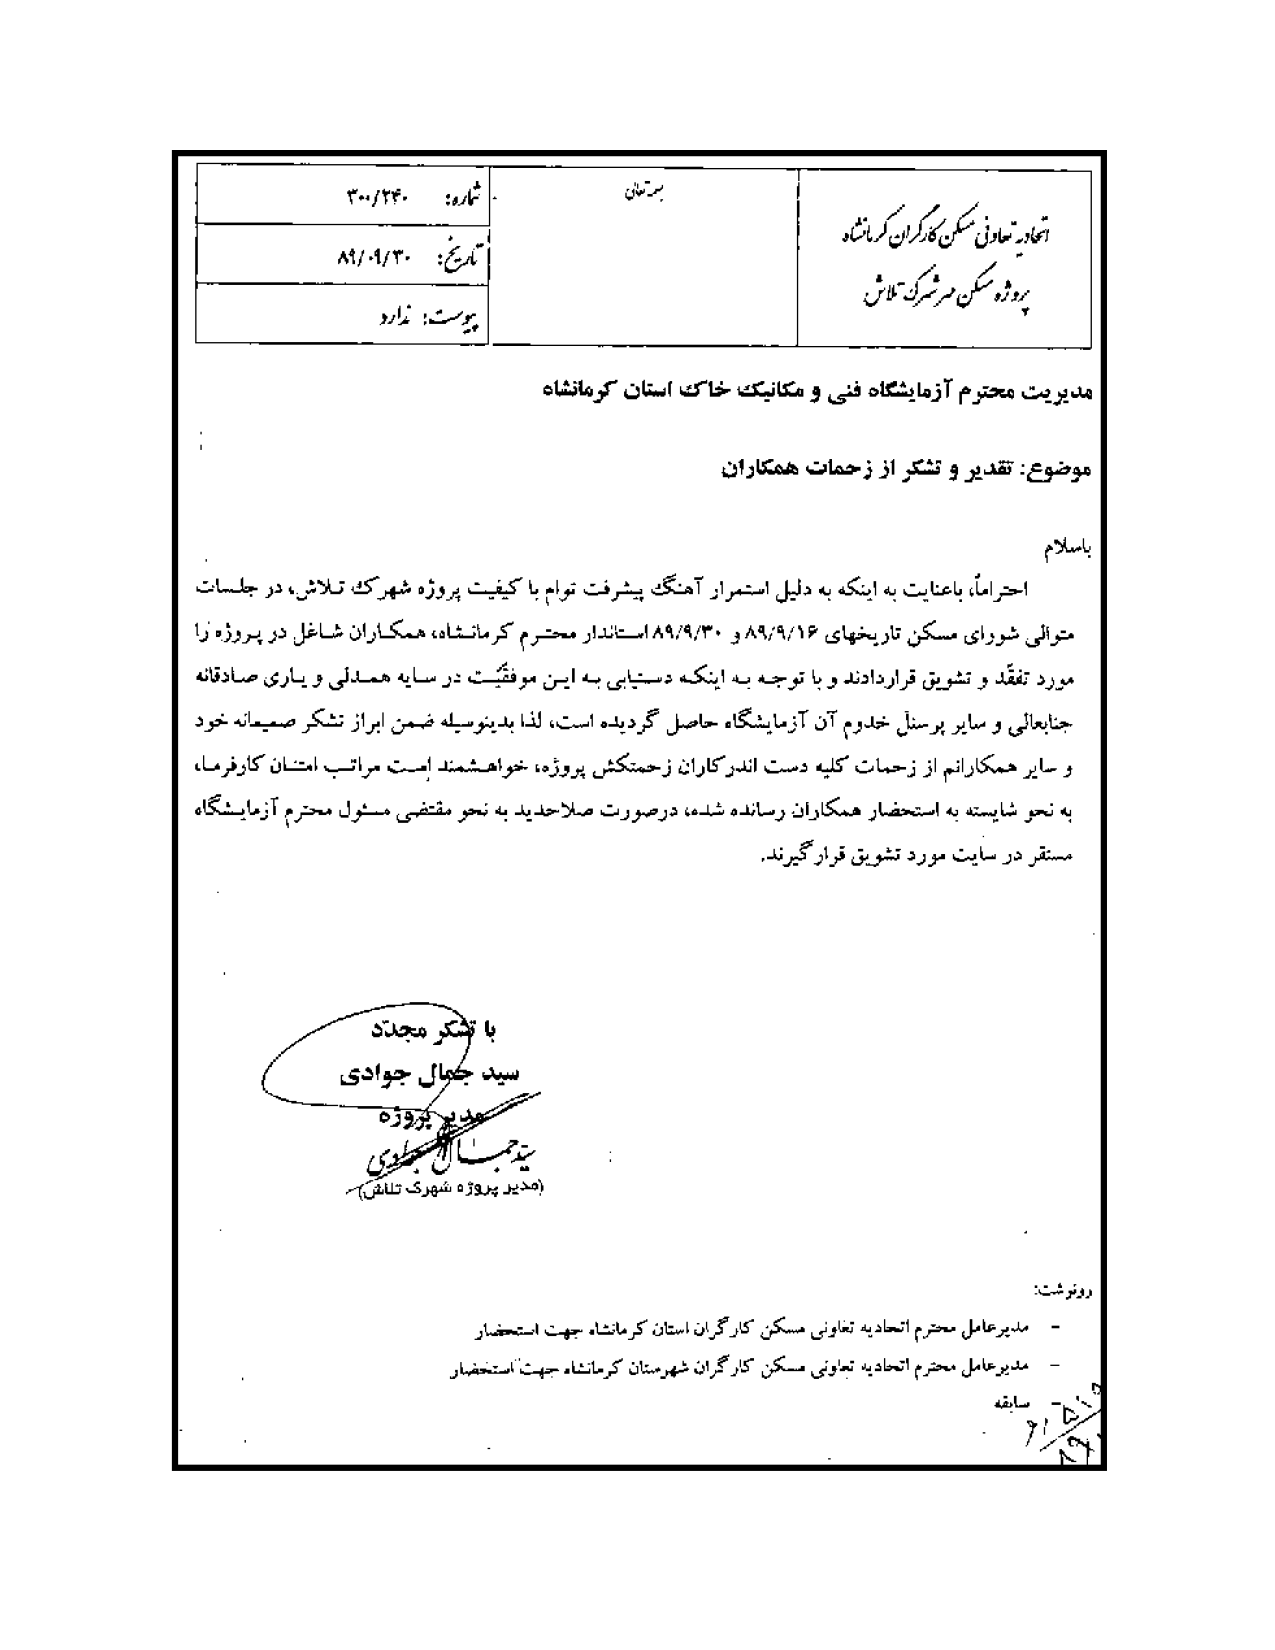 اتحادیه تعاونی مسکن کارگران کرمانشاه
پروژه مسکن مهر شهرک تلاش
بسمه تعالی
شماره: ۳۰۰/۲۴۰
تاریخ: ۸۹/۰۹/۳۰
پیوست: ندارد
مدیریت محترم آزمایشگاه فنی و مکانیک خاک استان کرمانشاه
موضوع: تقدیر و تشکر از زحمات همکاران
باسلام
احتراماً، باعنایت به اینکه به دلیل استمرار آهنگ پیشرفت توام با کیفیت پروژه شهرک تلاش، در جلسات
متوالی شورای مسکن تاریخهای ۸۹/۹/۱۶ و ۸۹/۹/۳۰ استاندار محترم کرمانشاه، همکاران شاغل در پروژه را
مورد تفقّد و تشویق قراردادند و با توجه به اینکه دستیابی به این موفقیّت در سایه همدلی و یاری صادقانه
جنابعالی و سایر پرسنل خدوم آن آزمایشگاه حاصل گردیده است، لذا بدینوسیله ضمن ابراز تشکر صمیمانه خود
و سایر همکارانم از زحمات کلیه دست اندرکاران زحمتکش پروژه، خواهشمند است مراتب امتنان کارفرما،
به نحو شایسته به استحضار همکاران رسانده شده، درصورت صلاحدید به نحو مقتضی مسئول محترم آزمایشگاه
مستقر در سایت مورد تشویق قرارگیرند.
با تشکر مجدّد
سید جمال جوادی
مدیر پروژه
سید جمال جوادی
(مدیر پروژه شهرک تلاش)
رونوشت:
- مدیرعامل محترم اتحادیه تعاونی مسکن کارگران استان کرمانشاه جهت استحضار
- مدیرعامل محترم اتحادیه تعاونی مسکن کارگران شهرستان کرمانشاه جهت استحضار
- سابقه